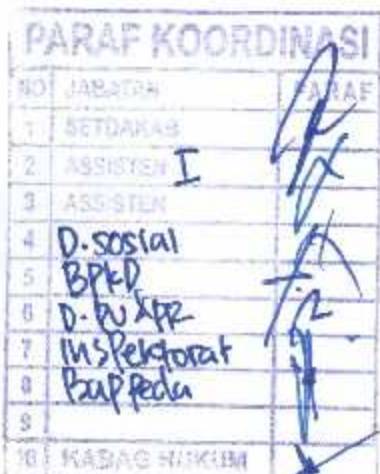 PARAF KOORDINASI
NO JABATAN PARAF
1 SETDAKAB
2 ASSISTEN I
3 ASSISTEN
4 D. sosial
5 BPKD
6 D. PU &PR
7 Inspektorat
8 Bappeda
9
10 KABAG HUKUM